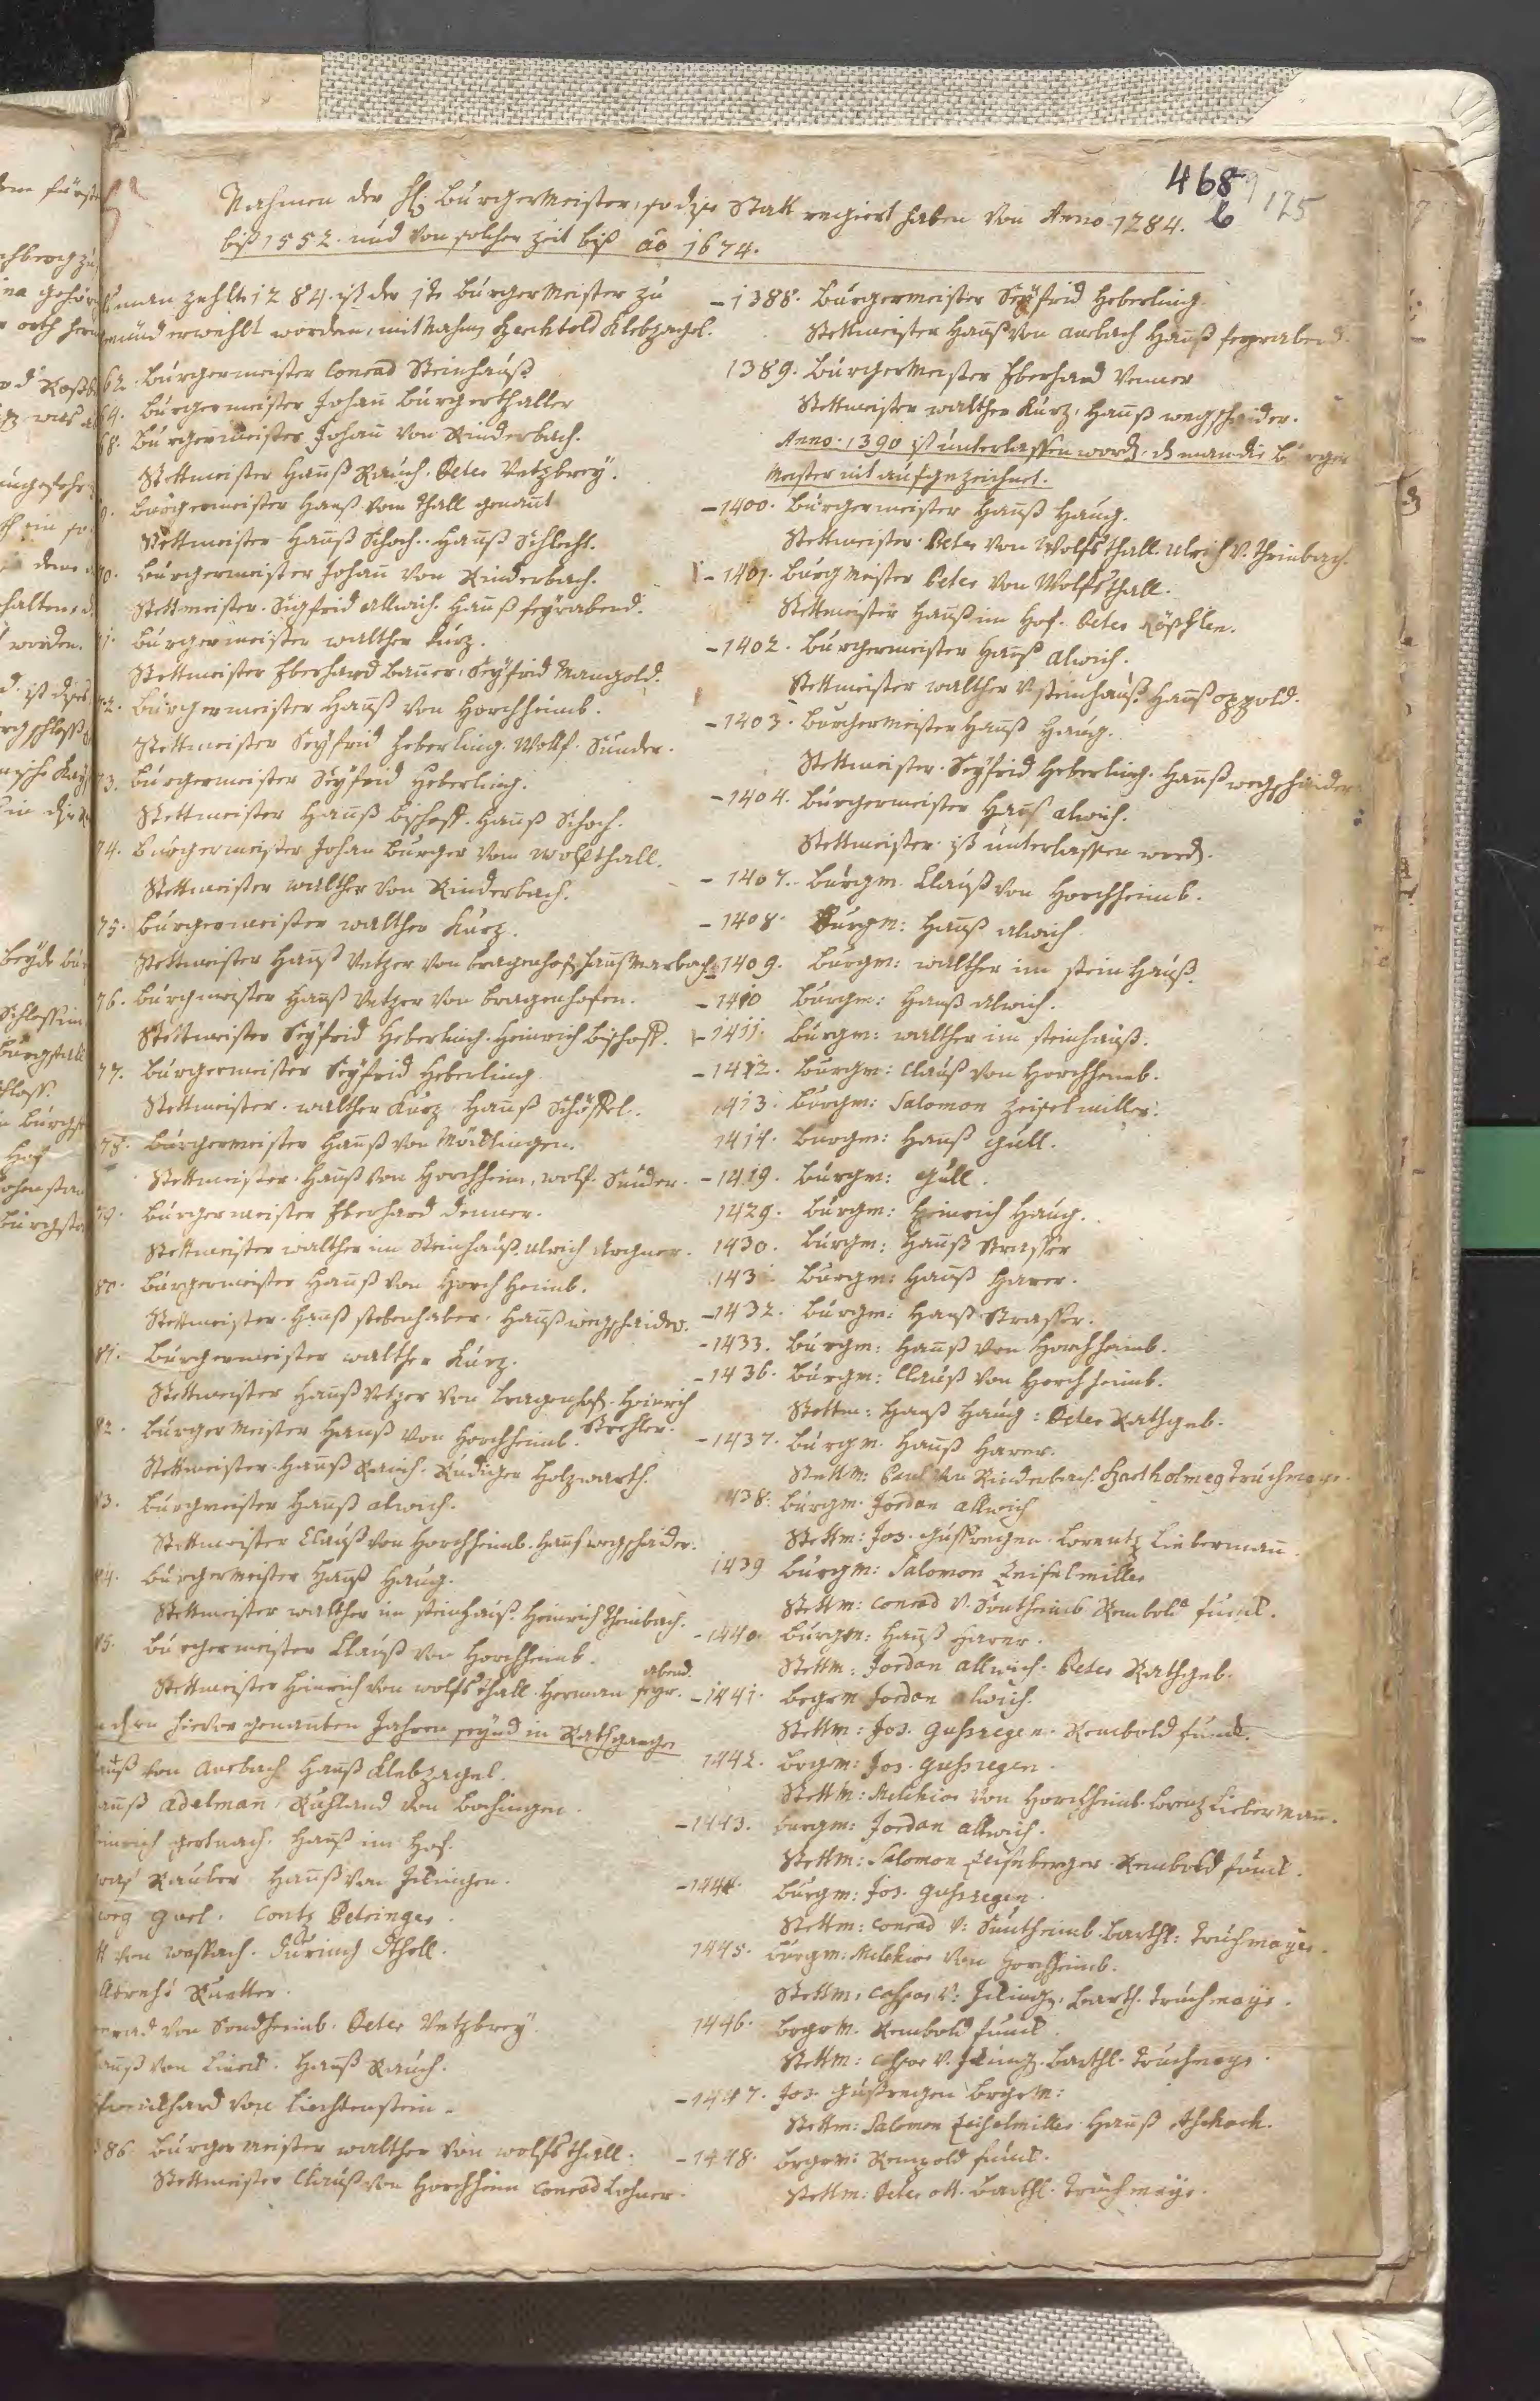 468
b
125
Nahmen der H: BürgerMeister, so dise Statt regiert haben Von Anno 1284.
biß 1552. und von solcher zeit biß ao 1674.
man zehlte 1284. ist der 1te BürgerMeister zu
münd erwehlt worden, mit Nahmen Berchtold Klebzagel.
62. Burgermeister Conrad Steinhäuß
64. Burgermeister Johan Burgerthaller
68. Burgermeister Johan Von Rinderbach.
Stettmeister Hanß Rauch. Peter Vetzbrey.
9. Burgermeister Hanß Vom Thall genant
Stettmeister Hanß Schoch. Hanß Schlecht.
70. Burgermeister Johan Von Rinderbach.
Stettmeister. Sigfrid allwich. Hanß feyrabend.
71. Burgermeister walther Kurz.
Stettmeister Eberhard Baurer, Seyfrid Mangold.
72. Burgermeister Hanß Von Horchheimb.
Stettmeister Seyfrid Heberling. Wolf. Sunder.
73. Burgermeister Seyfrid Heberling.
Stettmeister Hanß Bischoff. Hanß Schoch.
74. Burgermeister Johan Burger Vom Wolfthall.
Stettmeister walther Von Rinderbach.
75. Burgermeister walther Kurz.
Stettmeister Hanß Vetzer Von bragenhof, Hanß Marbach
76. Burgmeister Hanß Vetzer Von bragenhofen.
Stettmeister Seyfrid Heberling. Heinrich Bischoff.
77. Burgermeister Seyfrid Heberling
Stettmeister. walther Kurz Hanß Schöffel.
78. Burgermeister Hanß Von Mördlingen.
Stettmeister. Hanß Von Horchheim, wolf. Sunder.
79. Burgermeister Eberhard Venner.
Stettmeister walther im Steinhauß. Ulrich Argner.
80. Burgermeister Hanß Von Horchheimb.
Stettmeister. Hanß stebenhaber. Hanß wegschaider.
81. Burgermeister walther Kurz.
Stettmeister Hanß Vetzer Von bragenhof. Heinrich
Strehler.
82. BurgerMeister Hanß Von Horchheimb.
Stettmeister. Hanß Rauch. Rudiger Holzwarth.
83. Burgmeister Hanß alwich.
Stettmeister Clauß Von Horchheimb. Hanß wegschaider.
84. BurgerMeister Hanß Haug.
Stettmeister walther im steinhauß. Heinrich Theinbach.
85. Burgermeister Clauß Von Horchheimb.
Stettmeister Hinrich Von wolfsthall. Herman feyrabend.
hievor genanten Jahren seynd in Rathgangen
Hanß Von Aurbach Hanß Klebzagel.
Hanß adelman, Ruhland Von bochingen.
Heinrich gertnach. Hanß im Hof.
Rauber Hanß Von Jilingen.
Contz Betringer.
Von
Ruetter.
Conrad Von Sondheimb. Peter Vetzbrey.
Hanß Von Lindt. Hanß Rauch.
Von Liechtenstein.
86. BurgerMeister walther Von wolfsthall.
Stettmeister Clauß Von Horchheim Conrad Lohner.
1388. Burgermeister Seyfrid Heberling.
Stettmeister Hanß Von aurbach Hanß feyrabend.
1389. BurgerMeister Eberhard Venner
Stettmeister walther Kurz, Hanß wegschaider.
Anno. 1390 ist unterlassen word. d man die Burger
Meister nit aufgezeichnet.
1400. Burgermeister Hanß Haug.
Stettmeister. Peter Von Wolfsthall. Ulrich V. Theinbach.
1401. BurgMeister Peter Von Wolfsthall.
Stettmeister Hanß im Hof. Peter Rößhlen.
1402. Burgermeister Hanß alwich.
Stettmeister walther V steinhauß Hanß oppold.
1403. BurgerMeister Hanß Haug.
Stettmeister. Seyfrid Heberling. Hanß wegschaider
1404. Burgermeister Hanß alwich.
Stettmeister ist unterlassen word.
1407. Burgm. Clauß Von Horchheimb.
1408. Burgm: Hanß alwich
1409. Burgm: walther im steinhauß.
1410 Burgm: Hanß alwich.
1411. Burgm: walther im steinhauß.
1412. Burgm: Clauß Von Horchheimb.
1413. Burgm: Salomon Zeiselmiller.
1414. Burgm: Hanß gull.
1419. Burgm: gull.
1429. Burgm: Heinrich Haug.
1430. Burgm: Hanß Strasser
143 Burgm: Hanß Harer.
1432. Burgm: Hanß Strasser.
1433. Burgm: Hanß Von Horchheimb.
1436. Burgm: Clauß Von Horchheimb.
Stettm: Hanß Haug: Peter Rathgeb.
1437. Burgm. Hanß Harer.
Stettm: Paul Von Rinderbach Bartholmes Truchmayr.
1438. Burgm. Jordan allwich
Stettm: Jos. gussregen. Lorentz Lieberman.
1439 Burgm: Salomon Zeiselmiller
Stettm: Conrad V. Sontheimb Rembold funck.
1440. Burgm: Hanß Harer.
Stettm: Jordan allwich. Peter Rathgeb.
1441. Brgrm Jordan alwich.
Stettm: Jos. gussregen. Rembold funck.
1442. Brgm: Jos. gussregen.
Stettm: Melchior Von Horchheimb. Lorenz Lieberman.
1443. burgm: Jordan allwich.
Stettm: Salomon Zeiselberger. Rembold funck.
1444. Burgm: Jos. gussregen.
Stettm: Conrad V: Suntheimb. Barthl: Truchmayr.
1445. Burgm: Melchior Von Horchheimb.
Stettm: Caspar V: Iling. Barth. Truchmayr.
1446. Brgrm. Rembold funck.
Stettm: Caspar V. Iling. Barthl. Truchmayr.
1447. Jos. gussregen Brgrm:
Stettm: Salomon Zeiselmiller Hanß
1448. Brgrm: Rempold funck.
Stettm: Peter ott. Barthl. Truchmayr.